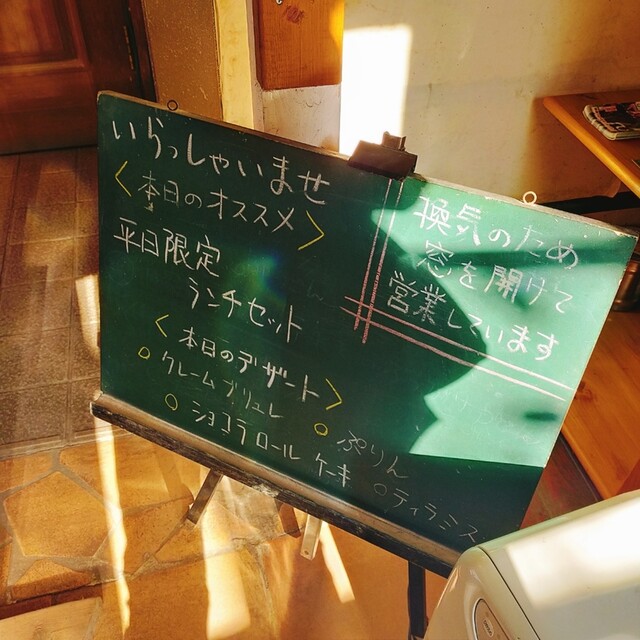 いらっしゃいませ
<本日のオススメ>
平日限定
ランチセット
<本日のデザート>
○クレームブリュレ
○ショコラロールケーキ
○ぷりん
○ティラミス
換気のため
窓を開けて
営業しています